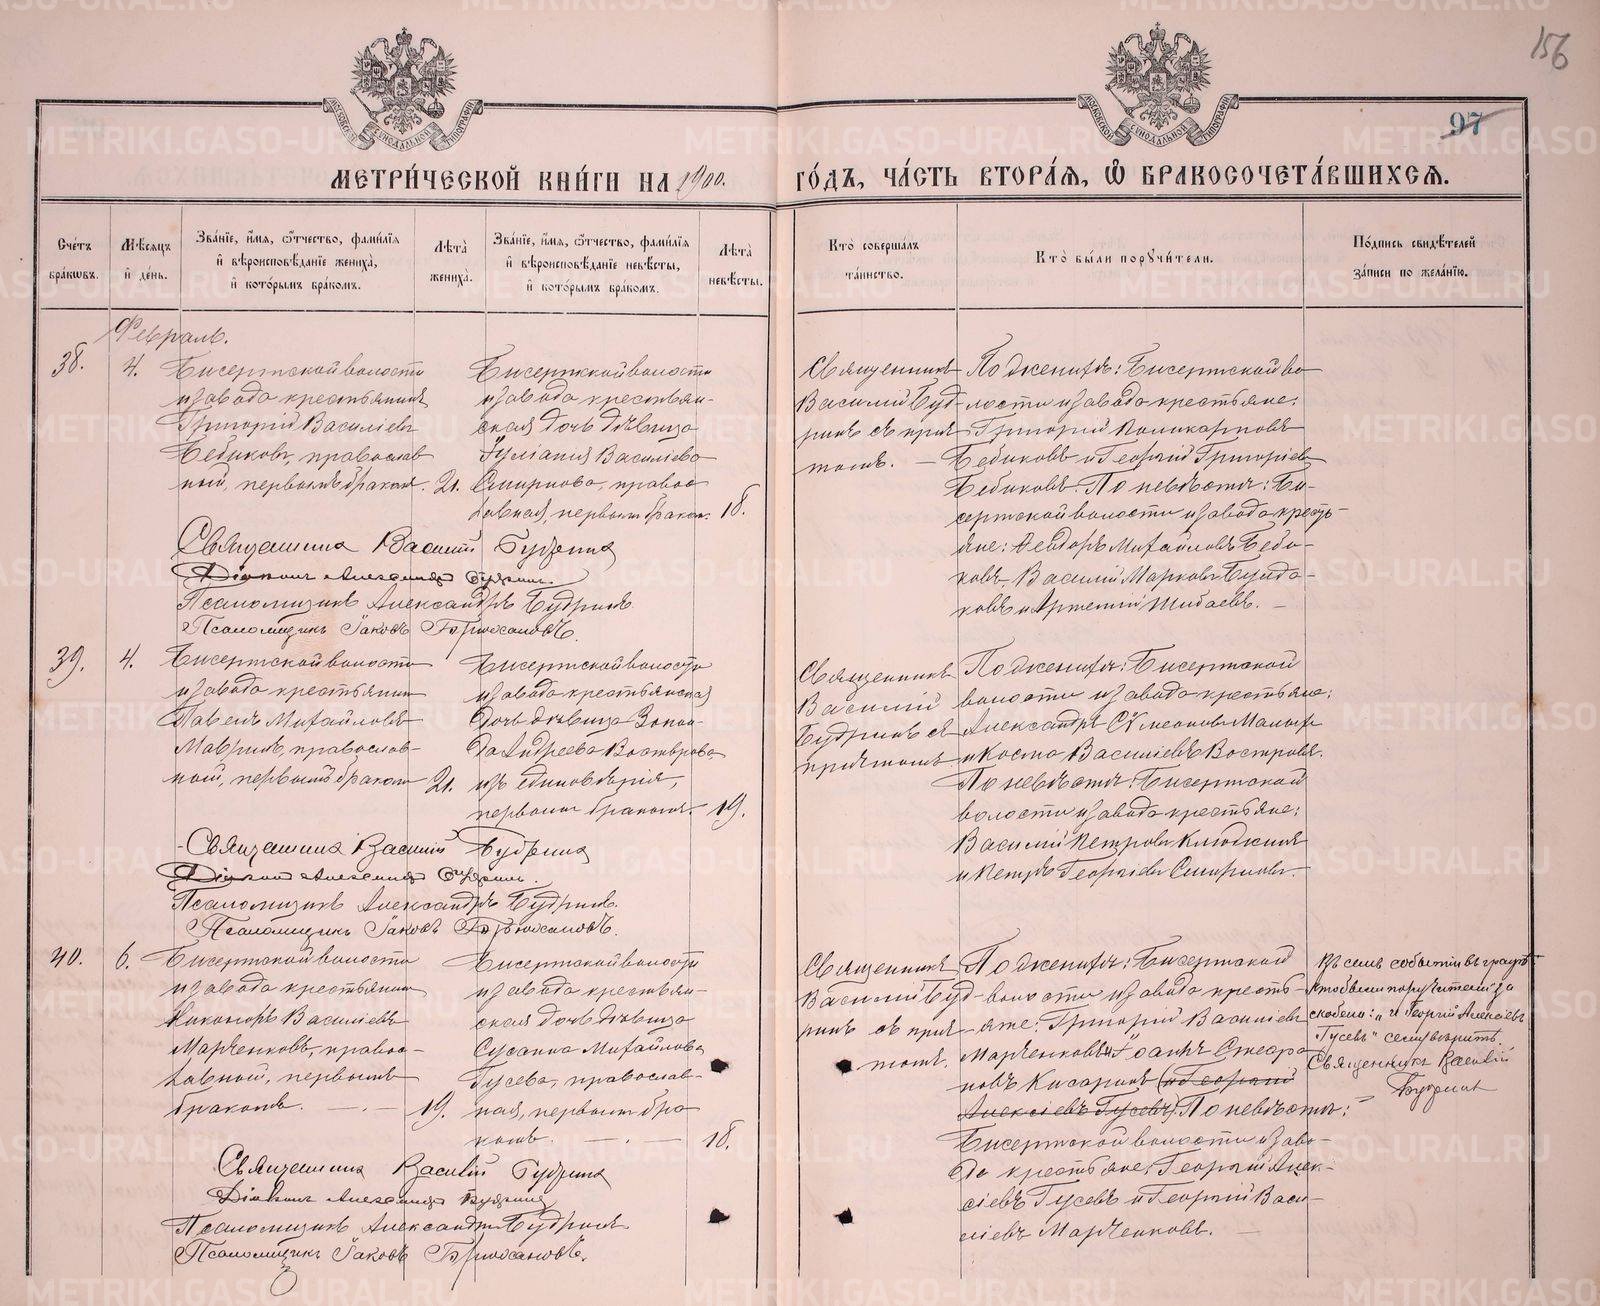 156
97
МОСКОВСКОЙ СѴНОДАЛЬНОЙ ТИПОГРАФИИ
МОСКОВСКОЙ СѴНОДАЛЬНОЙ ТИПОГРАФИИ
МЕТРИ́ЧЕСКОЙ КНИ́ГИ НА 1900.
ГО́ДЪ, ЧА́СТЬ ВТОРА́Я, Ѡ БРАКОСОЧЕТА́ВШИХСЯ.
Сче́тъ бра́кѡвъ.
Мѣ́сяцъ и де́нь.
Зва́нїе, и́мя, ѻ́тчество, фами́лїя
и вѣроисповѣ́данїе жениха̀,
и кото́рымъ бра́комъ.
Лѣ́та жениха̀.
Зва́нїе, и́мя, ѻ́тчество, фами́лїя
и вѣроисповѣ́данїе невѣ́сты,
и кото́рымъ бра́комъ.
Лѣ́та невѣ́сты.
Кто̀ соверша́лъ
та́инство.
Кто̀ бы́ли порꙋчи́тели.
По́дпись свидѣ́телей
за́писи по жела́нїю.
Февраль.
38.
4.
Бисертской волости
и завода крестьянинъ
Григорій Василіевъ
Бебиковъ, православ
ный, первымъ бракомъ.
21.
Бисертской волости
и завода крестьян-
ская дочь дѣвица
Іуліанія Василіева
Смирнова, право-
славная, первымъ бракомъ.
18.
Священникъ
Василій Буд-
ринъ съ прич
томъ. –
По женихѣ: Бисертской во
лости и завода крестьяне:
Григорій Поликарповъ
Бебиковъ и Георгій Григоріевъ
Бебиковъ. По невѣстѣ: Би-
сертской волости и завода кресть-
яне: Ѳеодоръ Михайловъ Беби-
ковъ, Василій Марковъ
и Артемій Шибаевъ. –
Священникъ Василій Будринъ
Діаконъ Александръ Будринъ.
Псаломщикъ Александръ Будринъ
Псаломщикъ Іаковъ
39.
4.
Бисертской волости
и завода крестьянинъ
Павелъ Михайловъ
Мавринъ, православ-
ный, первымъ бракомъ
21.
Бисертской волости
и завода крестьянская
дочь дѣвица Зинаи-
да Андреева Вострова,
изъ единовѣрія,
первымъ бракомъ. –
19.
Священникъ
Василій
Будринъ съ
причтомъ
По женихѣ: Бисертской
волости и завода крестьяне:
Александръ Сѵмеоновъ
и Косма Василіевъ Востровъ.
По невѣстѣ: Бисертской
волости и завода крестьяне:
Василій Петровъ Клюжинъ
и Петръ Георгіевъ Смирновъ.
Священникъ Василій Будринъ
Діаконъ Александръ Будринъ.
Псаломщикъ Александръ Будринъ.
Псаломщикъ Іаковъ
40.
6.
Бисертской волости
и завода крестьянинъ
Никаноръ Василіевъ
Марченковъ, право-
славный, первымъ
бракомъ.
19.
Бисертской волости
и завода крестьян-
ская дочь дѣвица
Сусанна Михайлова
Гусева, православ-
ная, первымъ бра
комъ.
18.
Священникъ
Василій Буд-
ринъ съ прич
томъ.
По женихѣ: Бисертской
волости и завода кресть-
яне: Григорій Василіевъ
Марченковъ и Іоаннъ Стефа
новъ Кисаринъ (и Георгій
Алексіевъ Гусевъ) По невѣстѣ:
Бисертской волости и заво-
да крестьяне: Георгій Алек-
сіевъ Гусевъ и Георгій Васи-
ліевъ Марченковъ. –
Въ семъ событіи въ графѣ:
Кто были поручители за
скобено: „и Георгій Алексіевъ
Гусевъ" сему вѣрить.
Священникъ Василій
Будринъ
Священникъ Василій Будринъ
Діаконъ Александръ Будринъ
Псаломщикъ Александръ Будринъ
Псаломщикъ Іаковъ
METRIKI.GASO-URAL.RU